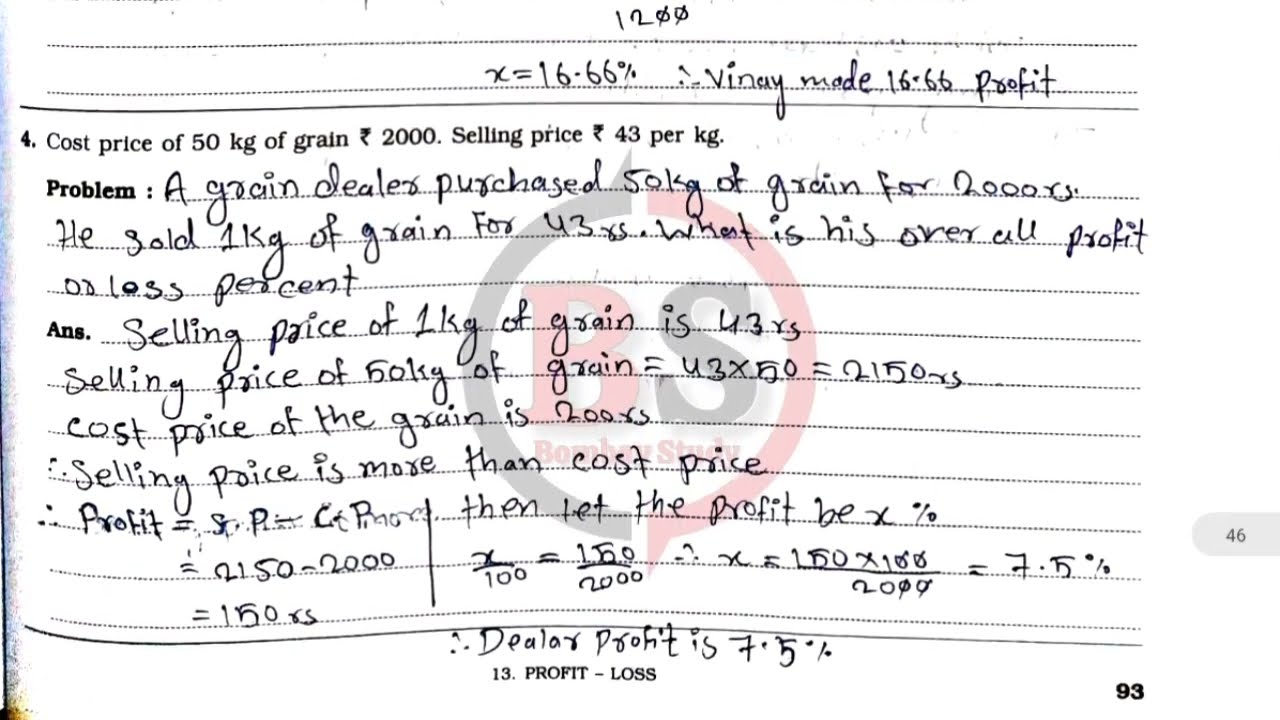 1200
x=16.66% ∴ Vinay made 16.66 profit
4. Cost price of 50 kg of grain ₹ 2000. Selling price ₹ 43 per kg.
Problem : A grain dealer purchased 50kg of grain for 2000rs.
He sold 1kg of grain for 43rs. What is his over all profit
or loss percent
Ans. Selling price of 1kg of grain is 43rs
Selling price of 50kg of grain = 43×50 = 2150rs
cost price of the grain is 200rs
∴ Selling price is more than cost price
∴ Profit = S.P. – C. P. then let the profit be x %
= 2150-2000 x/100 = 150/2000 ∴ x = 150×100/2000 = 7.5%
= 150rs
∴ Dealar profit is 7.5%
13. PROFIT – LOSS
93
BS
Bombay Study
46